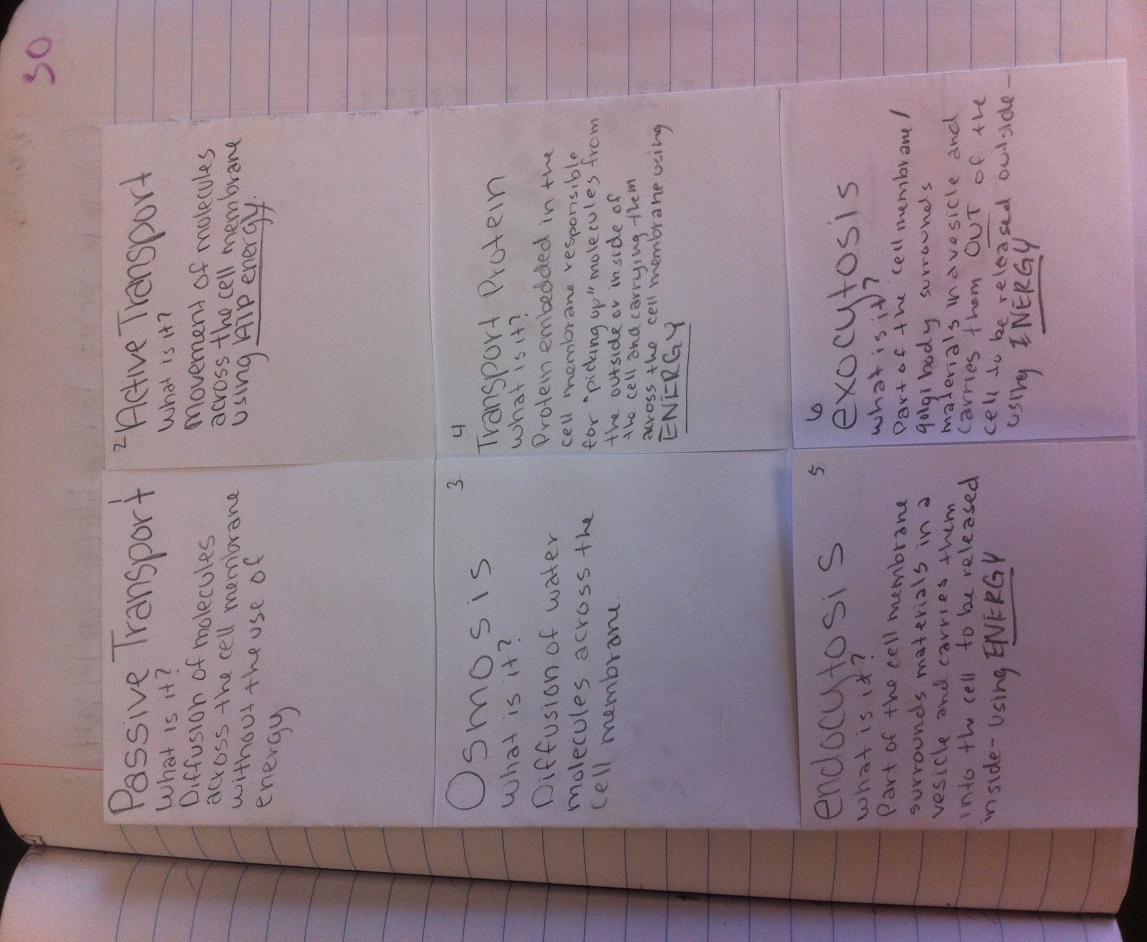 30
1
Passive Transport
What is it?
Diffusion of molecules
across the cell membrane
without the use of
energy
2
Active Transport
What is it?
Movement of molecules
across the cell membrane
using ATP energy.
3
Osmosis
What is it?
Diffusion of water
molecules across the
cell membrane
4
Transport Protein
What is it?
Protein embedded in the
cell membrane responsible
for "picking up" molecules from
the outside or inside of
the cell and carrying them
across the cell membrane using
ENERGY
5
endocytosis
What is it?
Part of the cell membrane
surrounds materials in a
vesicle and carries them
into the cell to be released
inside- using ENERGY
6
exocytosis
What is it?
Part of the cell membrane/
golgi body surrounds
materials in a vesicle and
carries them OUT of the
cell to be released outside-
using ENERGY